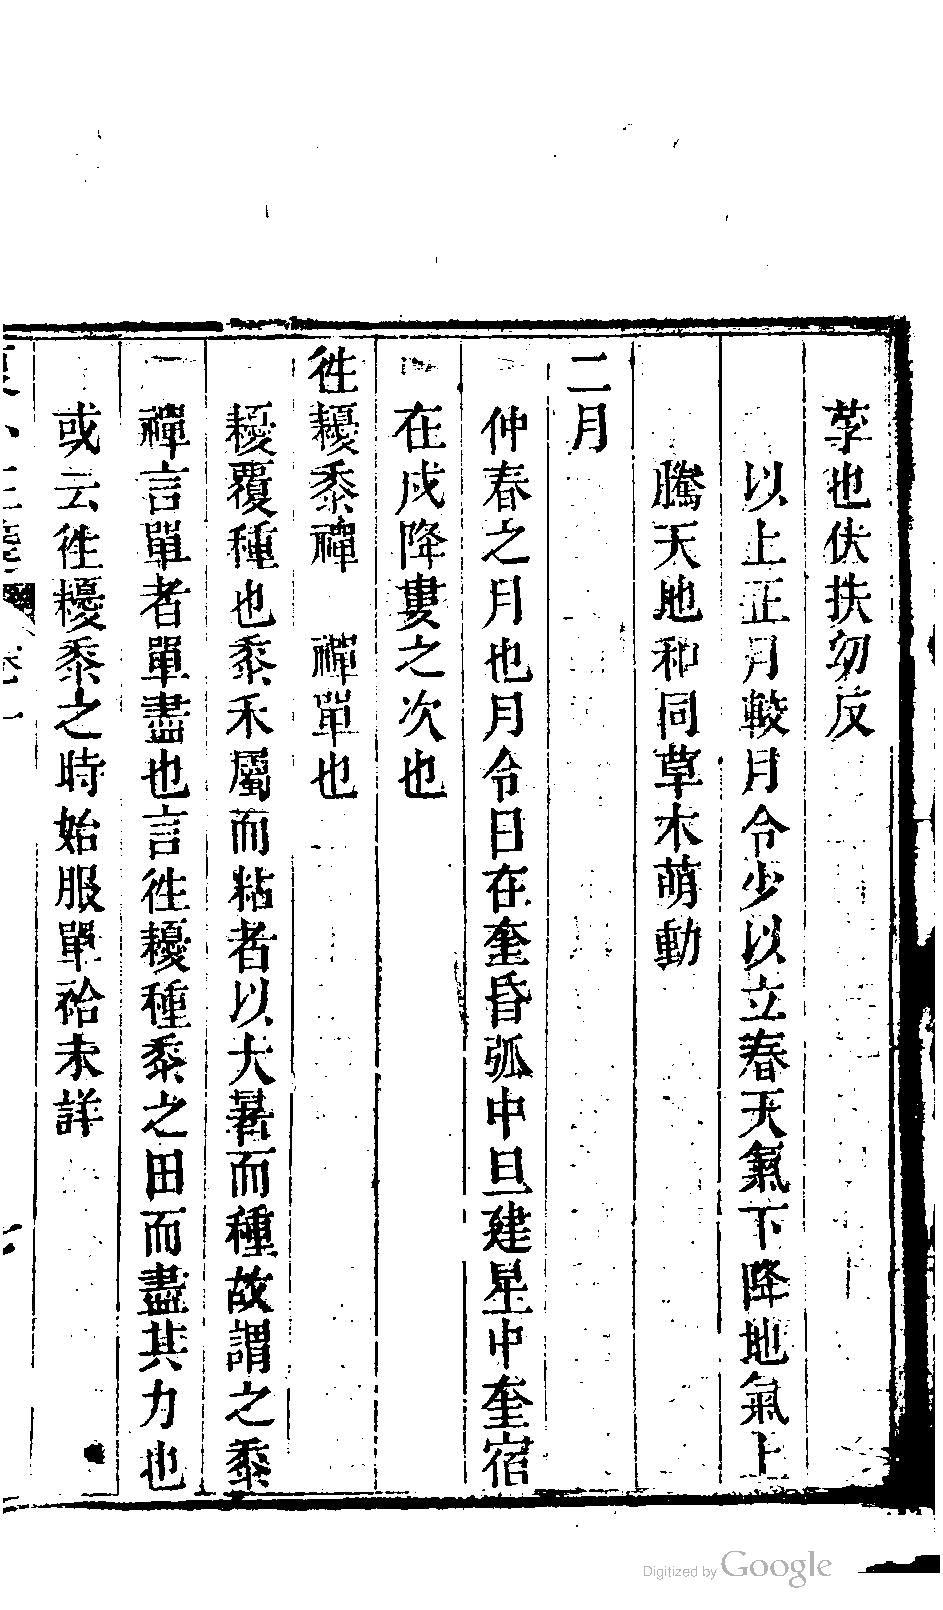 莩也伏扶勿反
以上正月較月令少以立春天氣下降地氣上
騰天地和同草木萌動
二月
仲春之月也月令日在奎昏弧中旦建星中奎宿
在戌降婁之次也
徃耰黍禪　禪單也
耰覆種也黍禾屬而粘者以大暑而種故謂之黍
禪言單者單盡也言徃耰種黍之田而盡其力也
或云徃耰黍之時始服單袷未詳
Digitized by Google